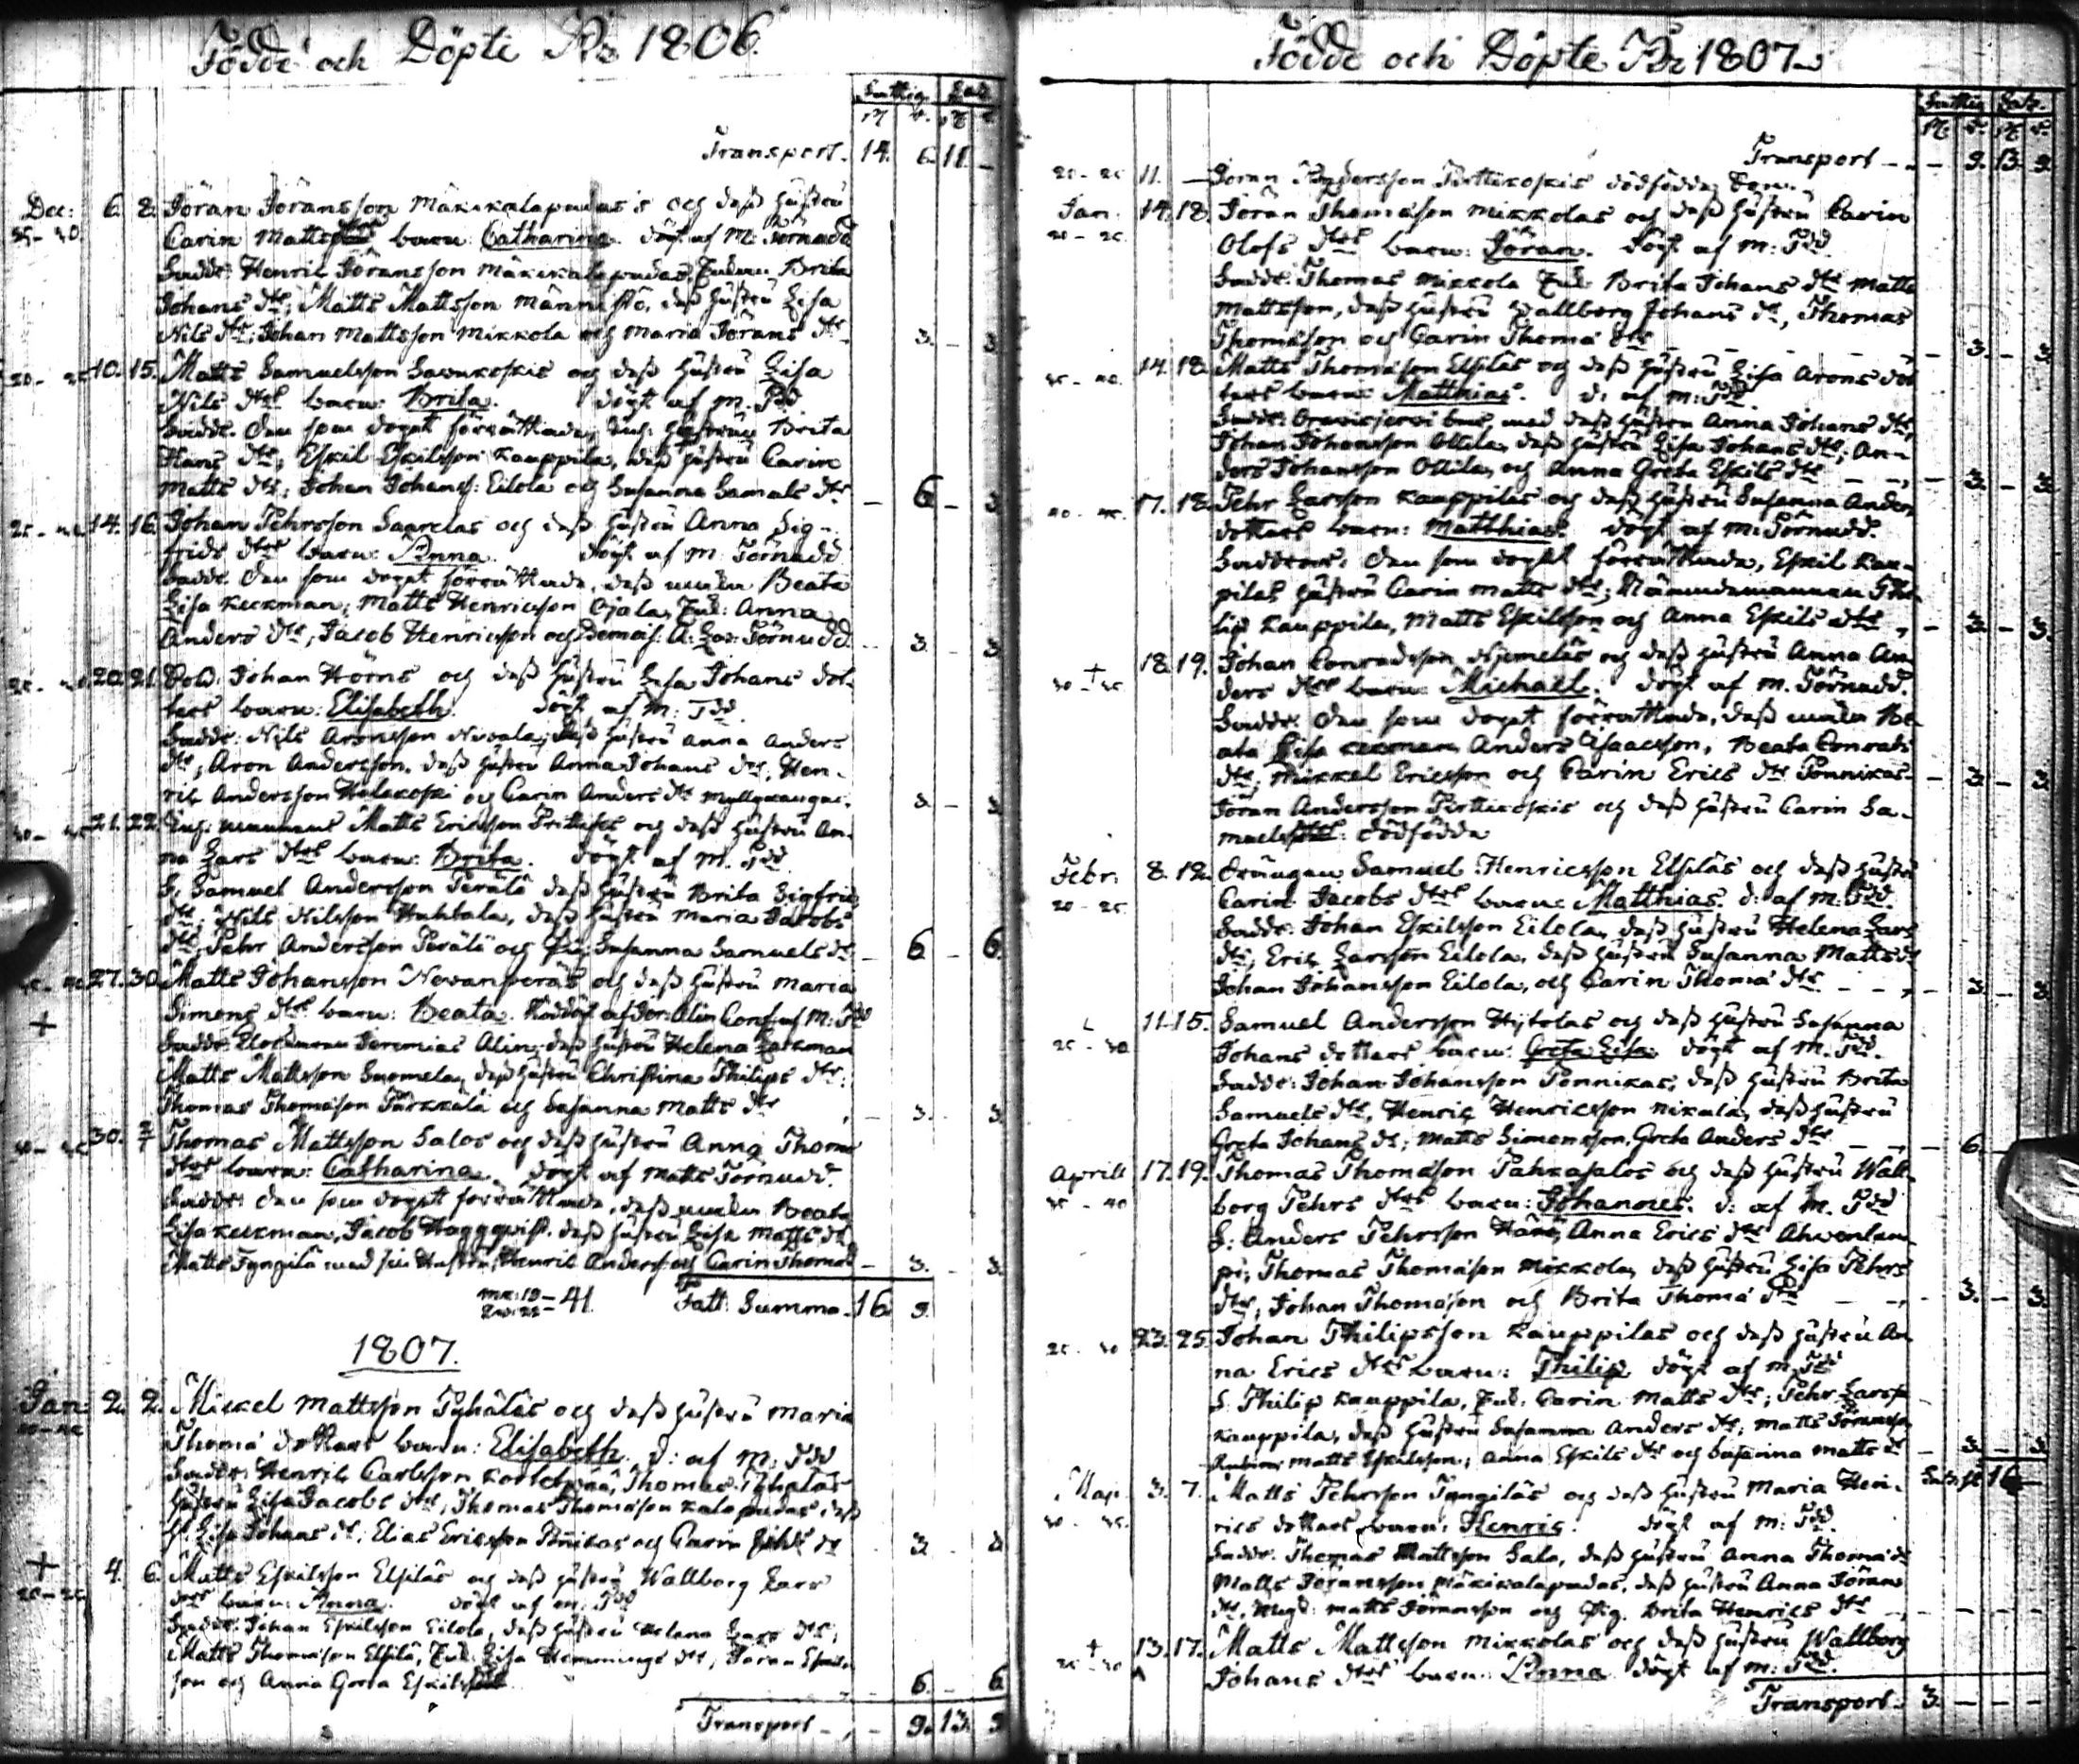 Födde och Döpte År 1806.
Fattig. Bok
Rd s. Rd s.
Transport. 14. 6. 11. -
Dec: 6. 8. Jöran Jöransson Mäkikalapudas's och dess hustru
35-40 Carin Matts dtrs barn: Catharina. döpt af M: Törnudd
Fadd: Henric Jöransson Mäkikalapudas, Enkan Brita
Johans dtr; Matts Mattsson Männistö, dess hustru Lisa
Nils dtr; Johan Mattsson Mikkola och Maria Jörans dtr - 3. - 3.
20-25 10. 15. Matts Samuelsson Savukoskis och dess hustru Lisa
Nils dtrs barn: Brita. döpt af M. Tdd
Fadd. den som dopet förrättade, hustru Brita
Hans dtr; Eskil Eskilsson Kauppila, dess hustru Carin
Matts dtr; Johan Johanss: Eilola och Susanna Samuels dtr - 6. - 3
14. 16. Johan Pehrsson Saarelas och dess hustru Anna Sig-
frids dtrs barn: Anna. döpt af M: Törnudd
Fadd. den som dopet förrättade, dess maka Beata
Lisa Keckman; Matts Henricsson Ojala, Enk: Anna
Anders dtr; Jacob Henricsson och Demois: A: Törnudd. - 3. - 3.
20. 21. Sold. Johan Hörns och dess hustru Lisa Johans dot-
ters barn: Elisabeth. döpt af M: Tdd.
Fadd: Nils Aronsson Nivala, dess hustru Anna Anders
dtr; Aron Andersson, dess hustru Anna Johans dtr; Hen-
ric Andersson och Carin Anders dtr Myllykangas. 3 - 3
21. 22. Matts Ericsson och dess hustru An-
na Lars dtrs barn: Brita. döpt af M. Tdd
F: Samuel Andersson Perälä dess hustru Brita Sigfrids
dtr; Nils Nilsson Huhtala, dess hustru Maria Jacobs
dtr; Pehr Andersson Perälä och Susanna Samuels dr - 6. - 6.
27. 30. Matts Johansson Nevanperäs och dess hustru Maria
+ Simons dtrs barn: Beata. Alin Conf af M: Tdd
Fadd: Klockaren Jeremias Alin, dess hustru Helena
Matts Mattsson Suomela, dess hustru Christina Philips dtr;
Thomas Thomasson Pürkkälä och Susanna Matts dtr - 3. - 3.
30. 2/1 Thomas Mattsson Salos och dess hustru Anna Thoma
dtrs barn: Catharina. döpt af Matts Törnudd.
Fadd: den som dopet förrättade, dess maka Beata
Lisa Keckman, Jacob Haggqvist, dess hustru Lisa Matts dr
Matts Tyngilä med sin Hustru; Henric Anderss: och Carin Thoma - 3. - 3.
mk: 19
qw: 22 = 41. Fatt. Summa. 16. 9.
1807.
Jan: 2. 2. Mickel Mattsson Pyhäläs och dess hustru Maria
Thomas dotters barn: Elisabeth. d: af M: Tdd
Fadd: Henric Carlsson Kortet Thomas Pyhäläs
hustru Lisa Jacobs dtr; Thomas Thomasson Kalapudas, dess
H. Lisa Johans dr; Elias Ericsson och Carin dr 3. - 3
+ 4. 6. Matts Eskilsson Elsiläs och dess hustru Wallborg Lars
dtrs barn: Anna. döpt af M. Tdd
Fadd: Johan Eskilsson Eilola, dess hustru Helena Lars dtr;
Matts Thomasson Elsilä, Enk: Lisa Hemmings dtr; Jöran Eskils-
son och Anna Greta Eskils dtr - 6. - 6
Transport - - 9. 13. 9
Födde och Döpte År 1807.
Fattig Bok.
Rd. s. Rd s.
Transport - - 9. 13. 9.
20-25 11. - Jöran Andersson Perttikoskis dödfödde Son.
Jan. 14. 18. Jöran Thomasson Mikkolas och dess hustru Carin
20-25. Olofs dtrs barn: Jöran. döpt af M: Tdd.
Fadd: Thomas Mikkola Enk. Brita Johans dtr Matts
Mattsson, dess hustru Wallborg Johans dr, Thomas
Thomasson och Carin Thoma dtr - 3. - 3.
14. 18. Matts Thomasson Elsiläs och dess hustru Lisa Arons dot
ters barn: Matthias. d: af M: Tdd
Fadd: med dess hustru Anna Johans dtr;
Johan Johansson Ollila, dess hustru Lisa Johans dtr; An-
ders Johansson Ollila, och Anna Greta Eskils dtr - 3. - 3.
17. 18. Pehr Larsson Kauppilas och dess hustru Susanna Anders
dotters barn: Matthias. döpt af M: Törnudd.
Faddrar: den som dopet förrättade, Eskil Kau-
pilas hustru Carin Matts dtr; Nämndemannen Phi-
lip Kauppila, Matts Eskilsson och Anna Eskils dtr - 3. - 3.
+ 18. 19. Johan Conradsson Njemeläs och dess hustru Anna An-
ders dtrs barn: Michael. döpt af M. Törnudd.
Fadd: den som dopet förrättade, dess maka Be-
ata Lisa Keckman Anders Isaacsson, Beata Conrads
dtr; Mikkel Ericsson och Carin Erics dtr Ponnikas. - 3. - 3
Jöran Andersson Perttikoskis och dess hustru Carin Sa-
muels dtrs: dödfödda
Febr: 8. 12. Drängen Samuel Henricsson Elsiläs och dess hustru
20-25 Carin Jacobs dtrs barn: Matthias. d: af M: Tdd.
Fadd: Johan Eskilsson Eilola, dess hustru Helena Lars
dtr; Eric Larsson Eilola, dess hustru Susanna Matts dr
Johan Johansson Eilola, och Carin Thoma dtr - - 3. - 3.
11. 15. Samuel Andersson Hytolas och dess hustru Susanna
25-30 Johans dotters barn: Greta Lisa. döpt af M. Tdd.
Fadd: Johan Johansson Ponnikas, dess hustru Brita
Samuels dtr, Henric Henricsson Nikula, dess hustru
Greta Johans dr; Matts Simonsson, Greta Anders dtr - - 6.
Aprill 17. 19. Thomas Thomasson Pahkasalos och dess hustru Wall-
35-40 borg Pehrs dtrs barn: Johannes. d: af M. Tdd
F: Anders Pehrsson Anna Erics dtr Ahvenlam-
pi, Thomas Thomasson Mikkola, dess hustru Lisa Pehrs
dtr; Johan Thomasson och Brita Thoma dtr - - 3. - 3.
25-30 23. 25. Johan Philipsson Kauppilas och dess hustru An
na Erics dtrs barn: Philip döpt af M. Tdd
F. Philip Kauppila, Enk. Carin Matts dtr; Pehr Larss
Kauppila, dess hustru Susanna Anders dtr; Matts Jöransson
Matts Eskilsson; Anna Eskils dtr och Susanna Matts dr - 3. - 3.
Maj. 3. 7. Matts Pehrsson Tyngiläs och dess hustru Maria Hen- 16 -
rics dotters barn: Henric. döpt af M: Tdd.
Fadd: Thomas Mattsson Salo, dess hustru Anna Thoma dr
Matts Jöransson Mäkikalapudas, dess hustru Anna Jörans
dtr, Matts Jöransson och Pig. Brita Henrics dtr
+ 13. 17. Matts Mattsson Mikkolas och dess hustru Wallborg
25-30 Johans dtrs barn: Anna döpt af M: Tdd.
Transport. 3. - - -